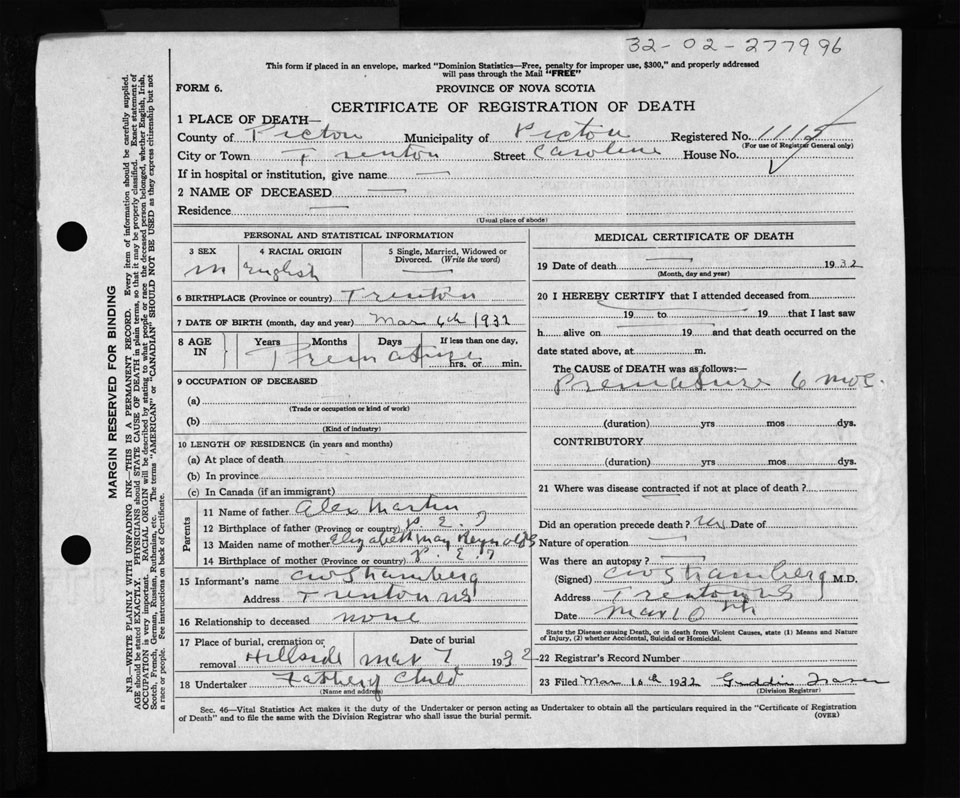 32-02-277996
This form if placed in an envelope, marked "Dominion Statistics—Free, penalty for improper use, $300," and properly addressed
will pass through the Mail "FREE"
FORM 6.
PROVINCE OF NOVA SCOTIA
CERTIFICATE OF REGISTRATION OF DEATH
1 PLACE OF DEATH—
County of Pictou Municipality of Pictou Registered No. 1115
(For use of Registrar General only)
City or Town Trenton Street Caroline House No.
If in hospital or institution, give name —
2 NAME OF DECEASED —
Residence —
(Usual place of abode)
PERSONAL AND STATISTICAL INFORMATION
3 SEX 4 RACIAL ORIGIN 5 Single, Married, Widowed or
Divorced. (Write the word)
M English —
6 BIRTHPLACE (Province or country) Trenton
7 DATE OF BIRTH (month, day and year) Mar 6th 1932
8 AGE IN Years Months Days If less than one day,
Premature hrs. or min.
9 OCCUPATION OF DECEASED
(a)
(Trade or occupation or kind of work)
(b)
(Kind of industry)
10 LENGTH OF RESIDENCE (in years and months)
(a) At place of death
(b) In province
(c) In Canada (if an immigrant)
Parents
11 Name of father Alex Martin
12 Birthplace of father (Province or country) P. E. I
13 Maiden name of mother Elizabeth May Reynolds
14 Birthplace of mother (Province or country) P. E. I
15 Informant's name
Address Trenton NS
16 Relationship to deceased none
17 Place of burial, cremation or Date of burial
removal Hillside Mar 7 1932
18 Undertaker Child
(Name and address)
MEDICAL CERTIFICATE OF DEATH
19 Date of death — 1932
(Month, day and year)
20 I HEREBY CERTIFY that I attended deceased from
19 to 19 that I last saw
h alive on 19 and that death occurred on the
date stated above, at m.
The CAUSE of DEATH was as follows:—
Premature 6 mos.
(duration) yrs mos dys.
CONTRIBUTORY
(duration) yrs mos dys.
21 Where was disease contracted if not at place of death?
Did an operation precede death? Date of
Nature of operation —
Was there an autopsy? —
(Signed) M.D.
Address Trenton NS
Date Mar 10th
State the Disease causing Death, or in death from Violent Causes, state (1) Means and Nature
of Injury, (2) whether Accidental, Suicidal or Homicidal.
22 Registrar's Record Number
23 Filed Mar 10th 1932 Fraser
(Division Registrar)
Sec. 46—Vital Statistics Act makes it the duty of the Undertaker or person acting as Undertaker to obtain all the particulars required in the "Certificate of Registration
of Death" and to file the same with the Division Registrar who shall issue the burial permit.
(OVER)
MARGIN RESERVED FOR BINDING
N.B.—WRITE PLAINLY WITH UNFADING INK—THIS IS A PERMANENT RECORD. Every item of information should be carefully supplied.
AGE should be stated EXACTLY. PHYSICIANS should STATE CAUSE OF DEATH in plain terms, so that it may be properly classified. Exact statement of
OCCUPATION is very important. RACIAL ORIGIN will be described by stating to what people or race the deceased person belonged, whether English, Irish,
Scotch, French, German, Russian, Ruthenian, etc. The terms "AMERICAN" or "CANADIAN" SHOULD NOT BE USED as they express citizenship but not
a race or people. See instructions on back of Certificate.